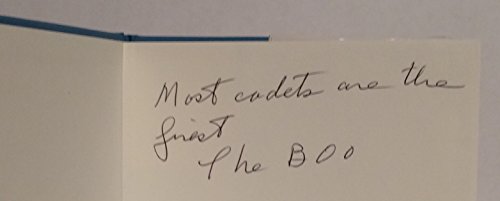 Most cadets are the
finest
The BOO